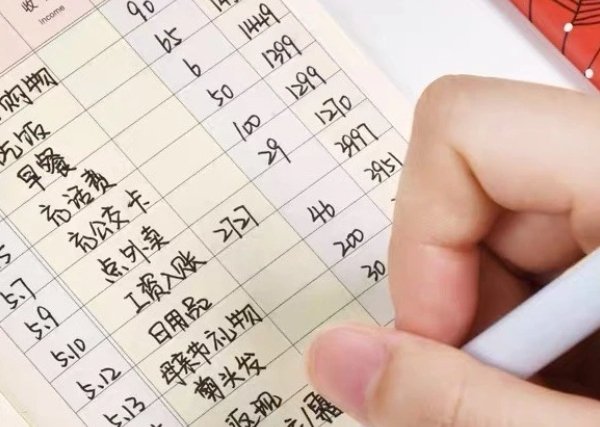 收
income
购物 90
吃饭 65
早餐 6 1449
充话费 50 1399
5.7 充公交卡 100 1299
5.9 点外卖 29 1270
5.10 工资入账 2727 3997
5.12 日用品 46 3951
5.13 母亲节礼物 200
剪头发 30
返现